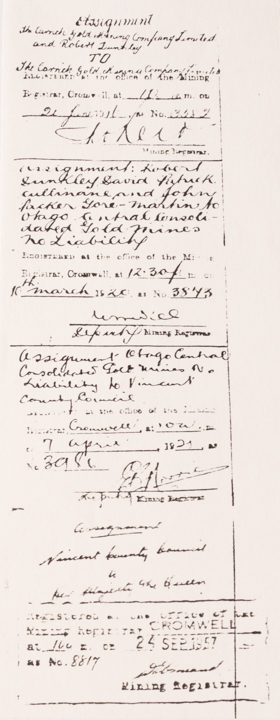 Assignment
The Carrick Gold Mining Company Limited
and Robert Dunkley
TO
The Carrick Gold Mining Company Limited
REGISTERED at the office of the Mining
Registrar, Cromwell, at 11 a.m. on
as No.
Mining Registrar.
Assignment: Robert
Dunkley David Patrick
Cullinane and John
Parker Gore-Martin to
Otago Central Consoli-
dated Gold Mines
No Liability
REGISTERED at the office of the Mining
Registrar, Cromwell, at 12.30 p.m. on
10th March 1920 as No. 3843
Deputy Mining Registrar
Assignment Otago Central
Consolidated Gold Mines No
Liability to Vincent
County Council
at the office of the Mining
Registrar Cromwell, at 10 a.m.
on 7 April, 1921 as
No
Deputy Mining Registrar
Assignment
Vincent County Council
to
Her Majesty the Queen
Registered at the office of the
Mining Registrar CROMWELL
at a.m. on 24 SEP 1957
as No. 8817
Mining Registrar.